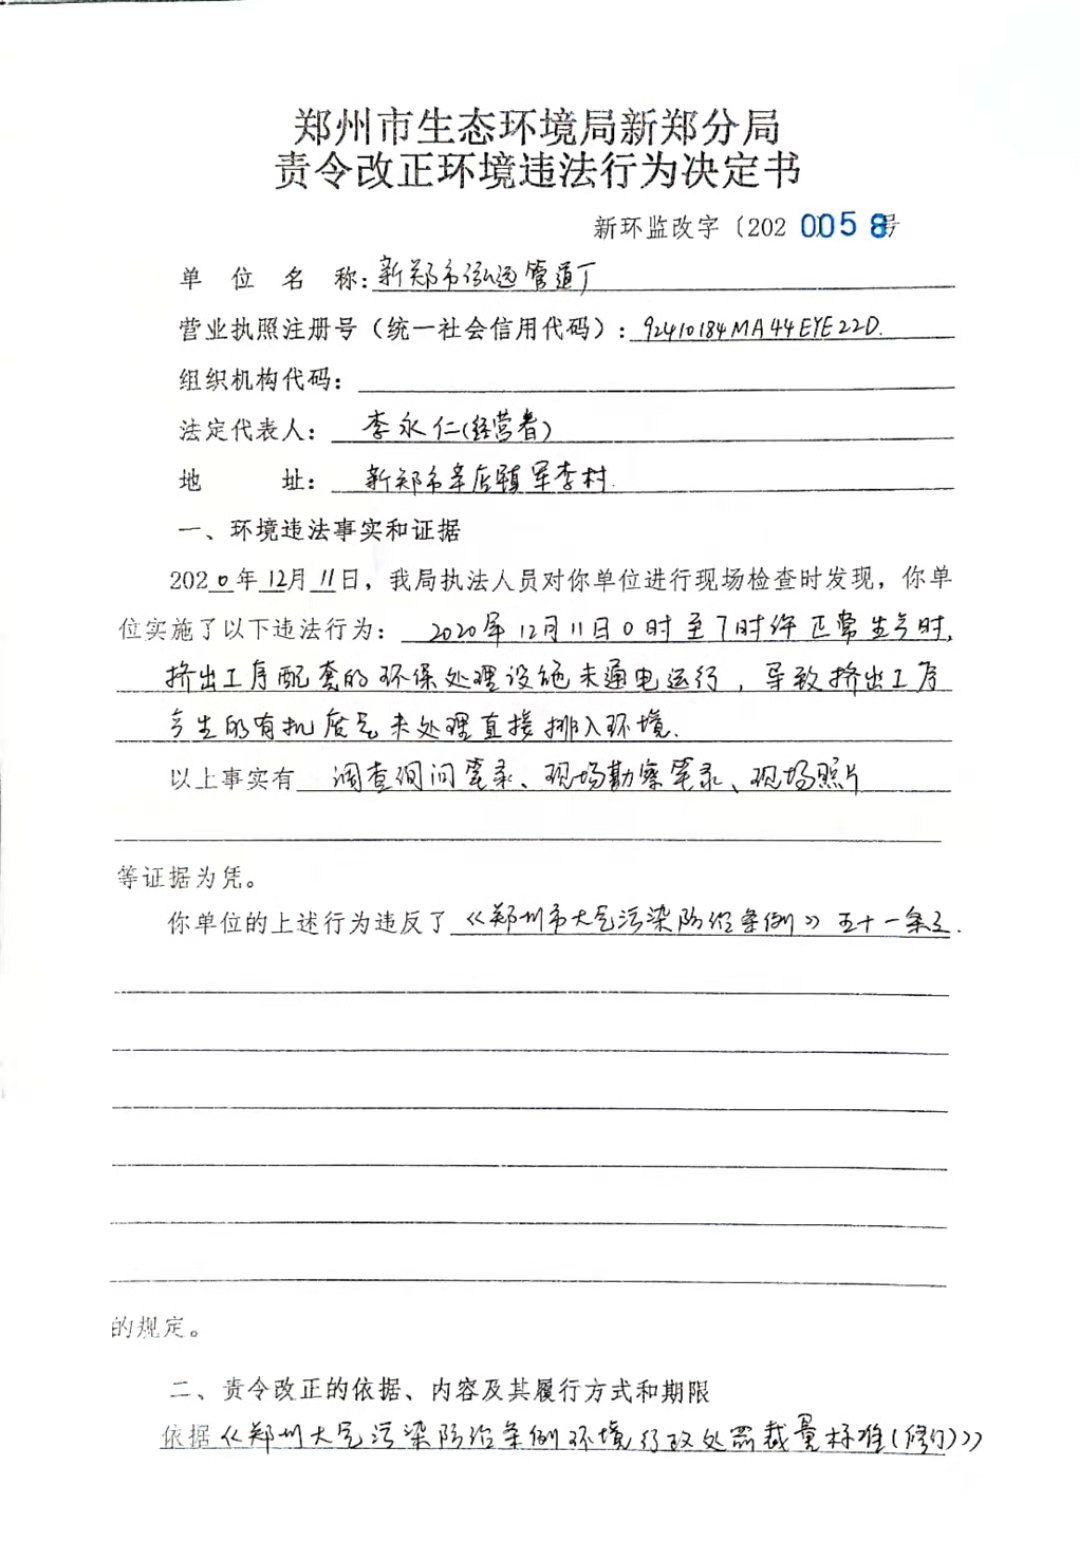 郑州市生态环境局新郑分局
责令改正环境违法行为决定书
新环监改字〔202 0058号
单位名称:新郑市泓远管道厂
营业执照注册号(统一社会信用代码):92410184MA44EYE22D.
组织机构代码:
法定代表人: 李永仁(经营者)
地 址: 新郑市辛店镇军李村.
一、环境违法事实和证据
2020年12月11日,我局执法人员对你单位进行现场检查时发现,你单
位实施了以下违法行为: 2020年12月11日0时至7时许正常生产时,
挤出工序配套的环保处理设施未通电运行,导致挤出工序
产生的有机废气未处理直接排入环境.
以上事实有 调查询问笔录、现场勘察笔录、现场照片
等证据为凭。
你单位的上述行为违反了《郑州市大气污染防治条例》五十一条之.
的规定。
二、责令改正的依据、内容及其履行方式和期限
依据《郑州大气污染防治条例环境行政处罚裁量标准(修订)》